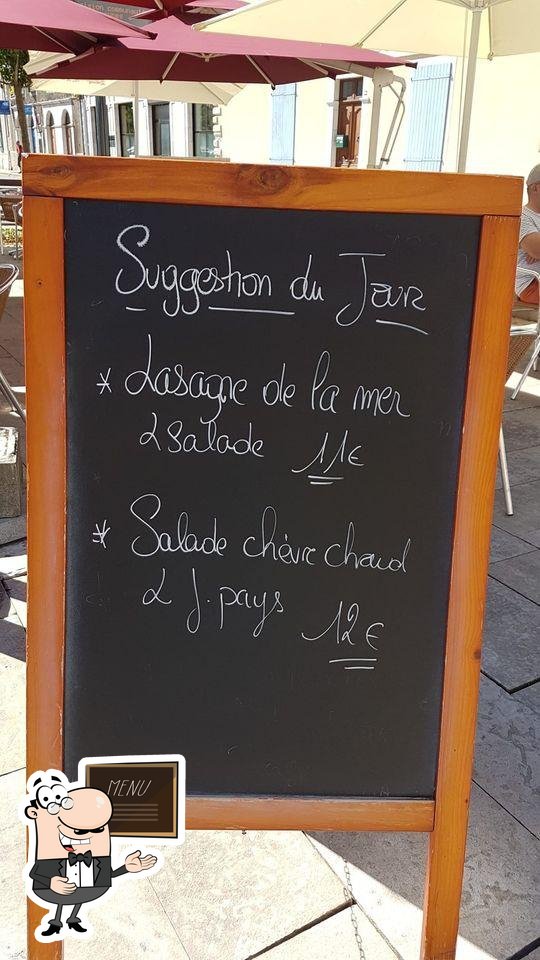 Suggestion du Jour
* Lasagne de la mer
& salade 11€
* Salade chèvre chaud
& J. pays 12€
MENU